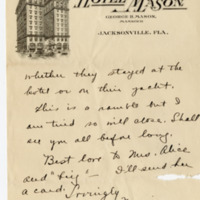 HOTEL MASON
GEORGE H. MASON,
MANAGER
JACKSONVILLE, FLA.
whether they stayed at the
hotel or on their yacht.
This is a ramble but I
am tired so will close. Shall
see you all before long.
Best love to Mrs. Alice
and "
I'll send her
a card. Lovingly